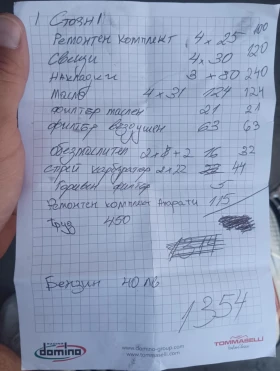 1 Стоян 1
Ремонтен комплект 4 x 25 100
Свещи 4 x 30 120
Накладки 8 x 30 240
Масло 4 x 31 124 124
Филтър маслен 21 21
Филтър въздушен 63 63
обезмаслител 2 x 8 + 2 16 32
карбуратор 2 x 22 44
Горивен филтър 5
Ремонтен комплект 115
Труд 450
1344
Бензин 40 лв
1354
domino
www.domino-group.com
TOMMASELLI